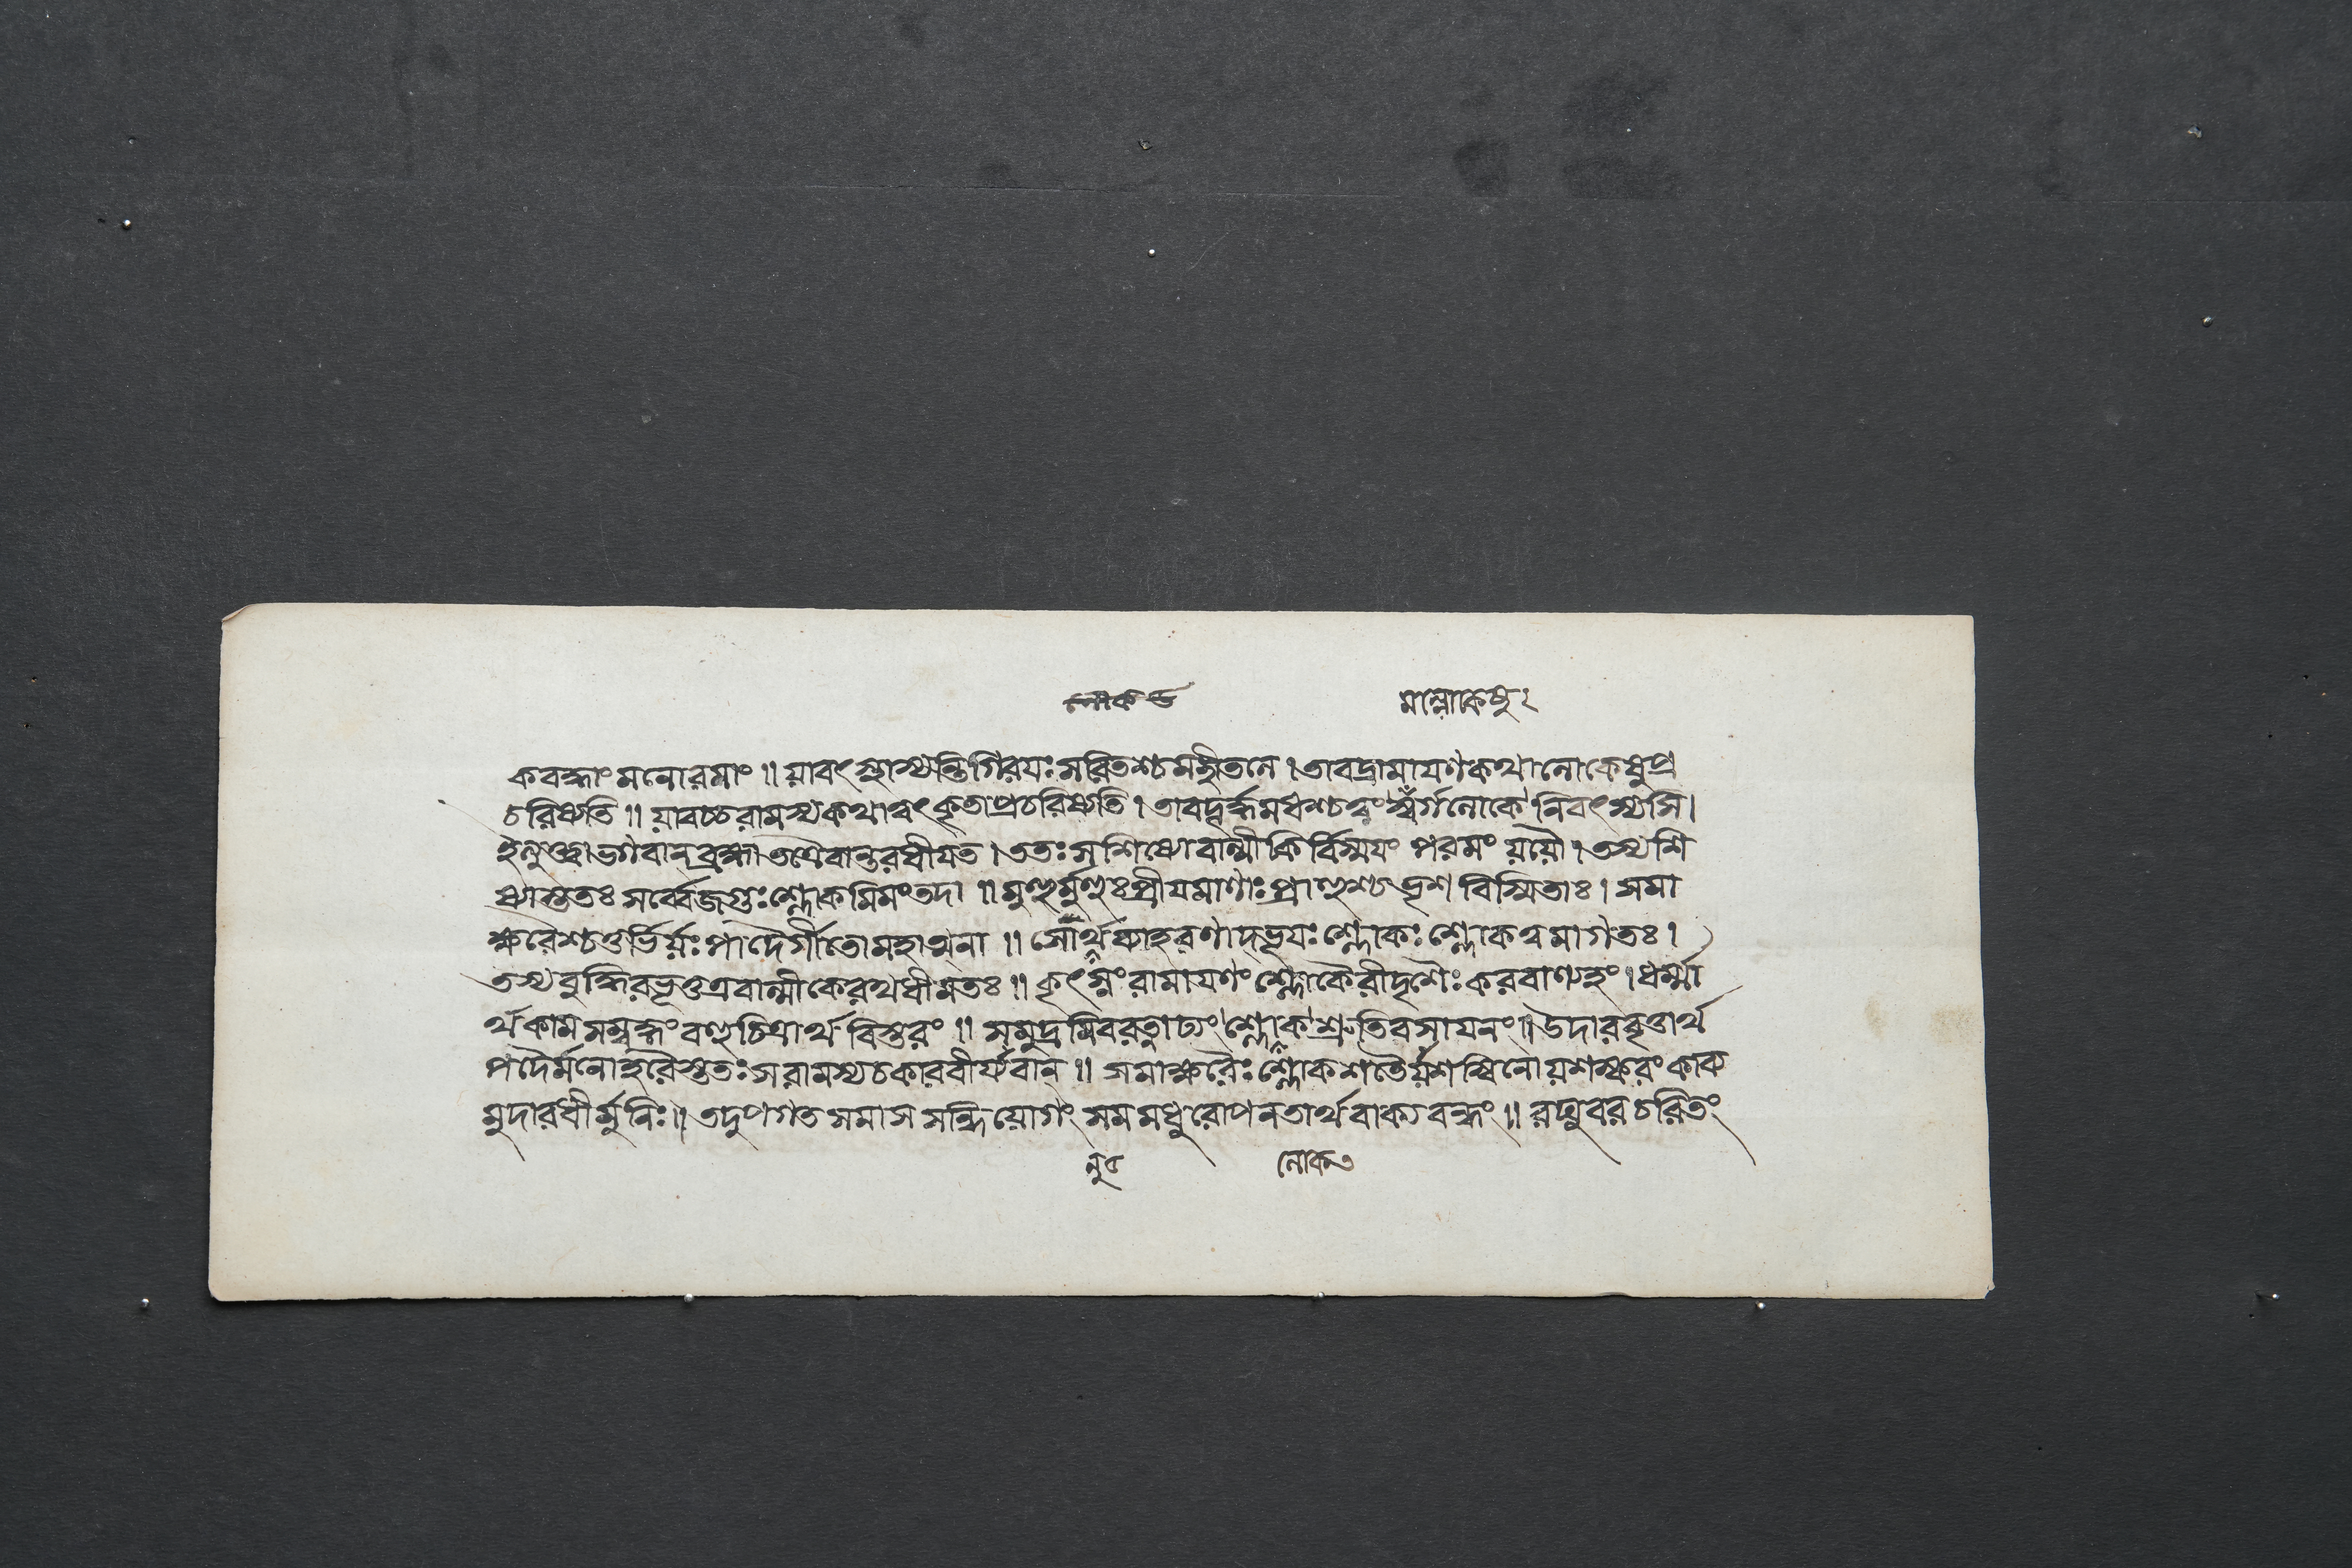 শ্লোকত মল্লোকেষু ২
কবদ্ধাং মনোরমাং ॥ যাবৎ স্থাস্যন্তি গিরযঃ সরিতশ্চ মহীতলে । তাবদ্রামাযণকথা লোকেষু প্র
চরিষ্যতি ॥ যাবচ্চ রামস্য কথা ত্বৎকৃতা প্রচরিষ্যতি । তাবদূর্দ্ধমধশ্চ ত্বং স্বর্গলোকে নিবৎস্যসি ।
ইত্যুক্ত্বা ভগবান্ ব্রহ্মা তত্রৈবান্তরধীযত । ততঃ সশিষ্যো বাল্মীকির্বিস্ময়ং পরমং যযৌ । তস্য শি
ষ্যাস্ততঃ সর্ব্বে জগুঃ শ্লোকমিমং তদা ॥ মুহুর্মুহুঃ প্রীযমাণাঃ প্রাহুশ্চ ভৃশবিস্মিতাঃ । সমা
ক্ষরৈশ্চতুর্ভির্যঃ পাদৈর্গীতো মহাত্মনা ॥ সোর্থব্যাহরণাদ্ভূযঃ শ্লোকঃ শ্লোকত্বমাগতঃ ।
তস্য বুদ্ধিরভূত্তত্র বাল্মীকেরথ ধীমতঃ ॥ কৃৎস্নং রামাযণং শ্লোকৈরীদৃশৈঃ করবাণ্যহং । ধর্ম্মা
র্থকামসম্বদ্ধং বহুচিত্রার্থবিস্তরং ॥ সমুদ্রমিব রত্নাঢ্যং শ্লোকশ্রুতিরসাযনং ॥ উদারবৃত্তার্থ
পদৈর্মনোহরৈস্ততঃ স রামস্য চকার বীর্য্যবান্ ॥ সমাক্ষরৈঃ শ্লোকশতৈর্যশস্বিনো যশস্করং কাব্য
মুদারধীর্মুনিঃ ॥ তদুপগতসমাসসন্ধিযোগং সমমধুরোপনতার্থবাক্যবদ্ধং ॥ রঘুবরচরিতং
লোকত